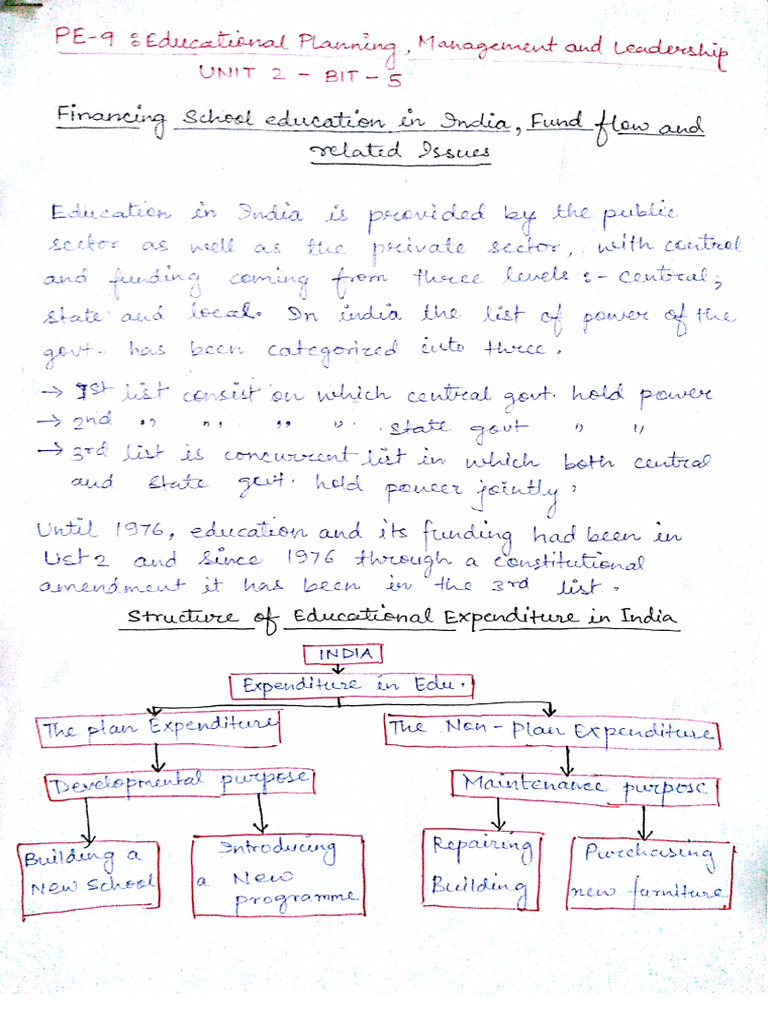 PE-9 : Educational Planning, Management and Leadership
UNIT 2 - BIT - 5
Financing School education in India, Fund flow and
related Issues
Education in India is provided by the public
sector as well as the private sector, with control
and funding coming from three levels :- central,
state and local. In india the list of power of the
govt. has been categorized into three.
→ 1st list consist on which central govt. hold power
→ 2nd ,, ,, ,, ,, state govt ,, ,,
→ 3rd list is concurrent list in which both central
and state govt. hold power jointly,
Until 1976, education and its funding had been in
List 2 and since 1976 through a constitutional
amendment it has been in the 3rd list.
Structure of Educational Expenditure in India
INDIA
Expenditure in Edu.
The plan Expenditure
The Non-Plan Expenditure
Developmental purpose
Maintenance purpose
Building a
New School
Introducing
a New
programme
Repairing
Building
Purchasing
new furniture